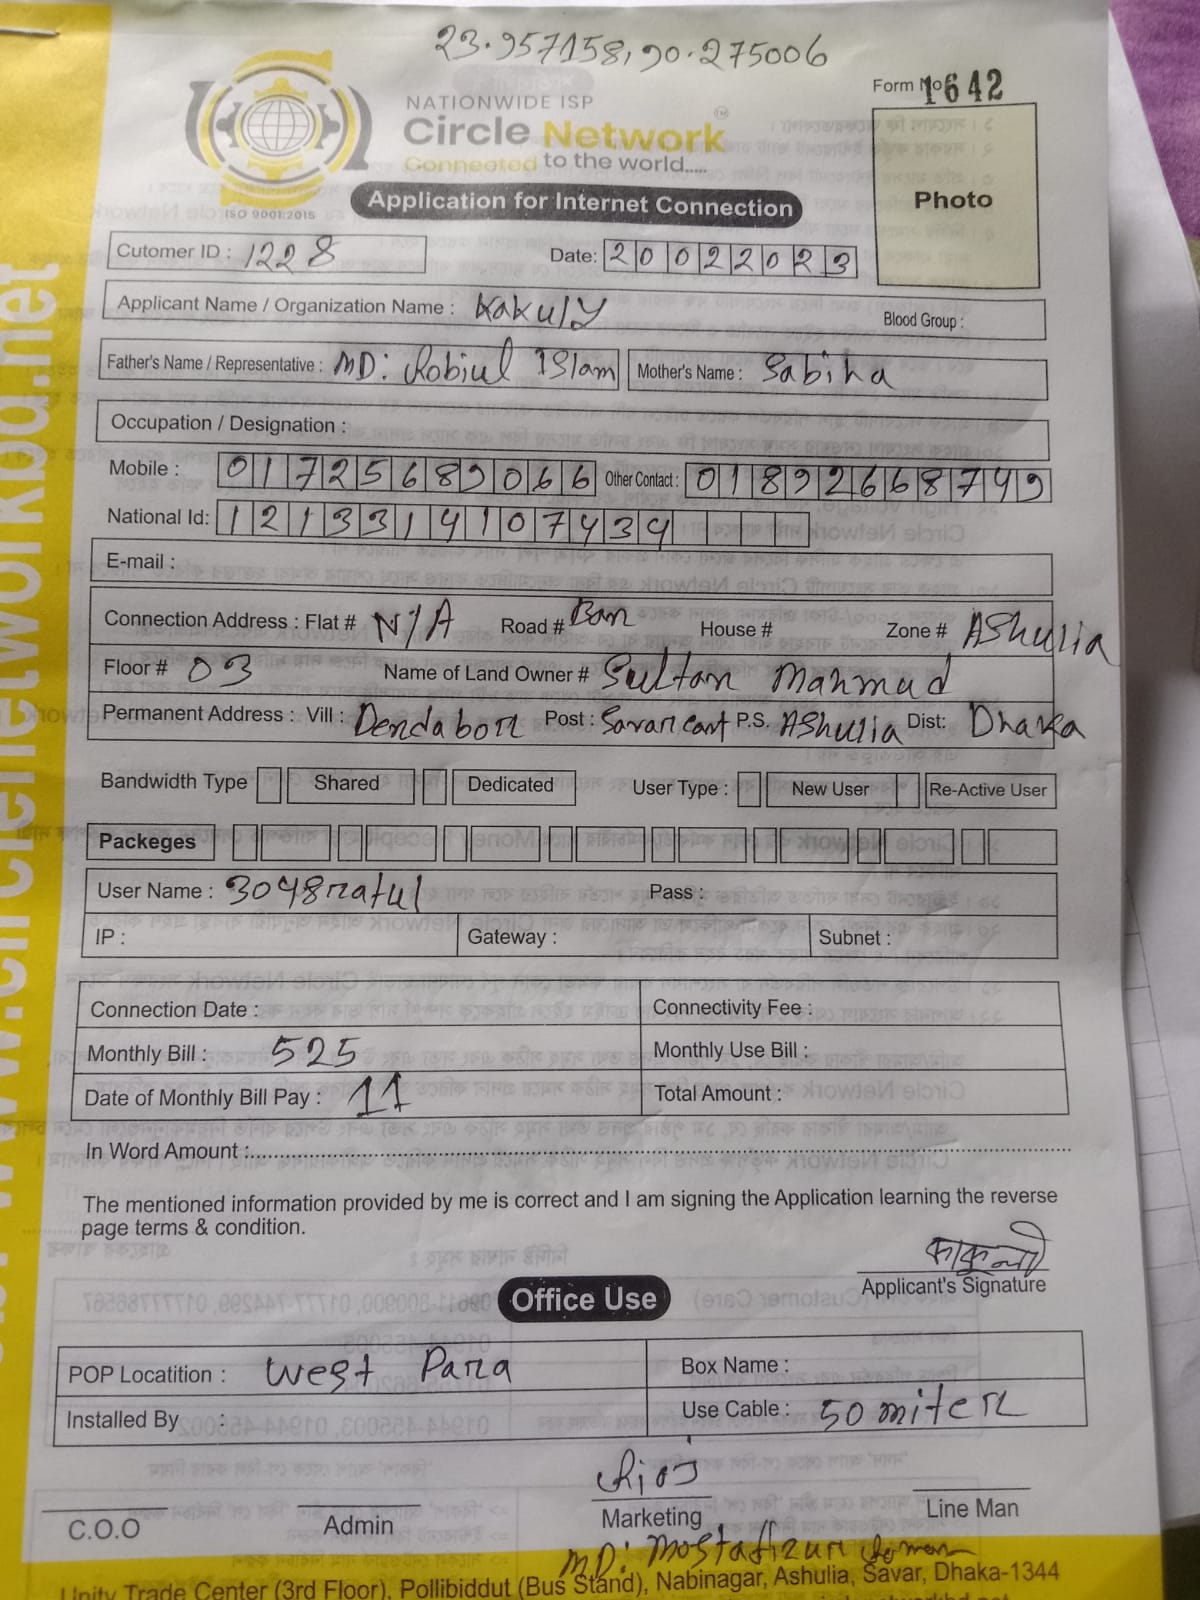 23.957158,90.275006
Form No 1642
NATIONWIDE ISP
Circle Network
Connected to the world.....
ISO 9001:2015
Application for Internet Connection
Photo
Cutomer ID : 1228 Date: 20022023
Applicant Name / Organization Name : Kakuly Blood Group :
Father's Name / Representative : MD: Robiul Islam Mother's Name : Sabiha
Occupation / Designation :
Mobile : 01725689066 Other Contact : 01892668749
National Id: 1213314107434
E-mail :
Connection Address : Flat # N/A Road # Ban House # Zone # AShulia
Floor # 03 Name of Land Owner # Sultan Mahmud
Permanent Address : Vill : Dendabor Post : Savar cant P.S. AShulia Dist: Dhaka
Bandwidth Type Shared Dedicated User Type : New User Re-Active User
Packeges
User Name : 3048ratul Pass :
IP : Gateway : Subnet :
Connection Date : Connectivity Fee :
Monthly Bill : 525 Monthly Use Bill :
Date of Monthly Bill Pay : 11 Total Amount :
In Word Amount :
The mentioned information provided by me is correct and I am signing the Application learning the reverse
page terms & condition.
কাকুলী
Applicant's Signature
Office Use
POP Locatition : West Para Box Name :
Installed By : Use Cable : 50 miter
C.O.O Admin Marketing Line Man
MD: Mostafizur Roman
Unity Trade Center (3rd Floor), Pollibiddut (Bus Stand), Nabinagar, Ashulia, Savar, Dhaka-1344
www.circlenetworkbd.net